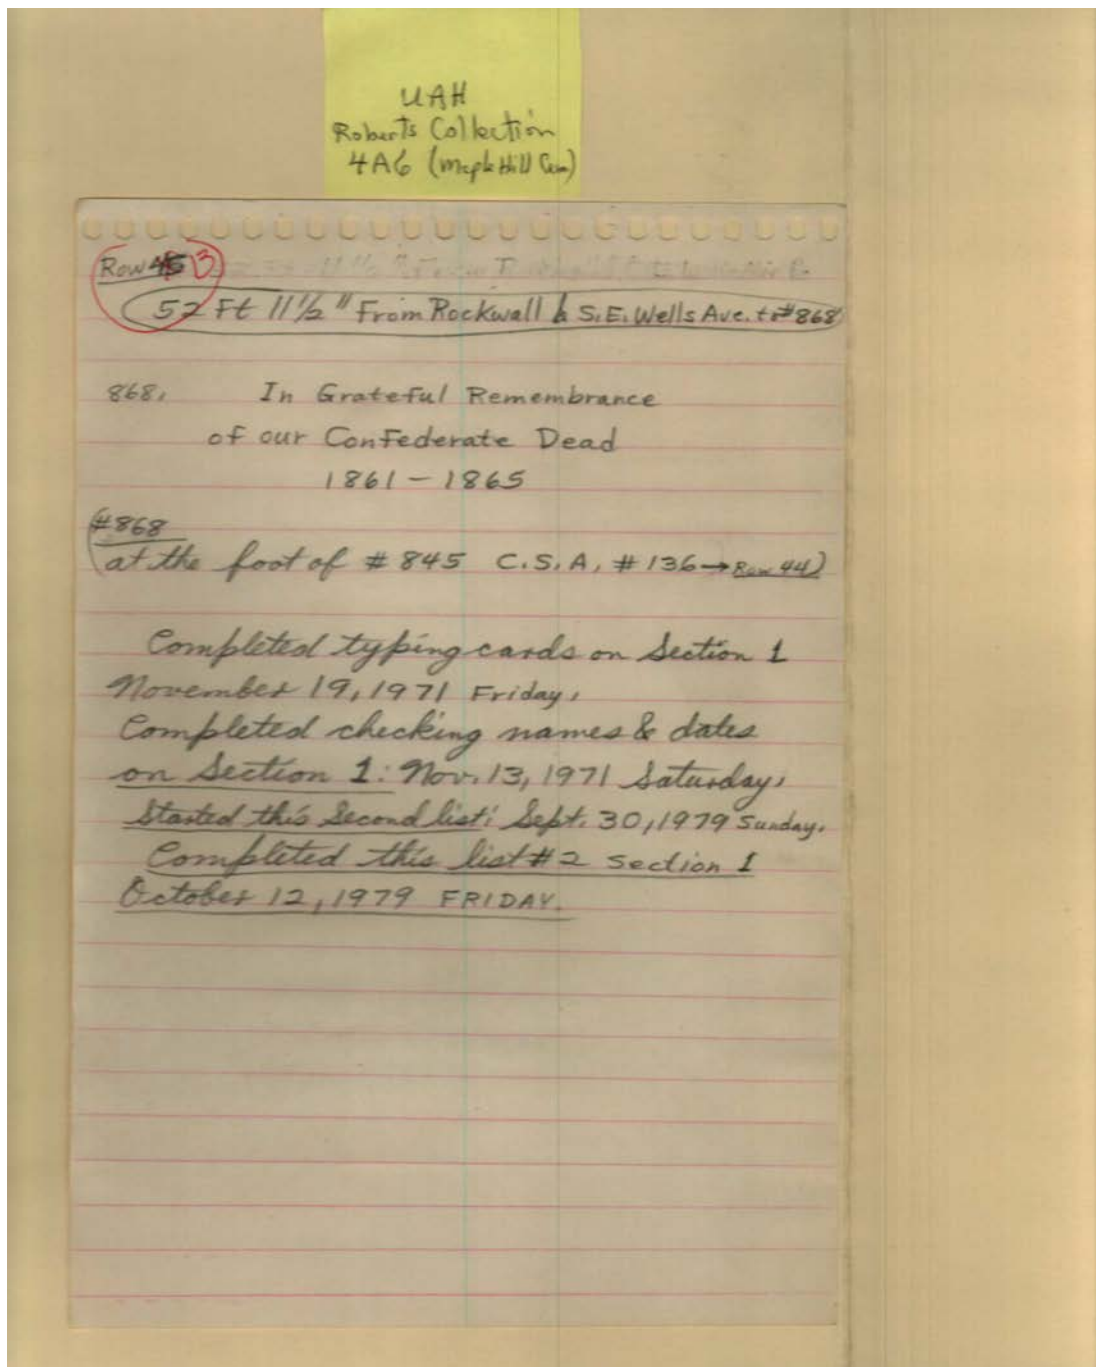 UAH
Roberts Collection
4A6 (Maple Hill Cem)
Row 45 3
52 Ft 11 1/2" From Rockwall & S.E. Wells Ave. to #868
868. In Grateful Remembrance
of our Confederate Dead
1861 - 1865
(#868
at the foot of # 845 C.S.A. # 136 → Row 44)
Completed typing cards on Section 1
November 19, 1971 Friday.
Completed checking names & dates
on Section 1: Nov. 13, 1971 Saturday.
Started this Second list: Sept. 30, 1979 Sunday.
Completed this list #2 Section 1
October 12, 1979 FRIDAY.